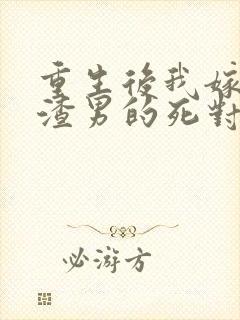 重生後我嫁
渣男的死對
必游方